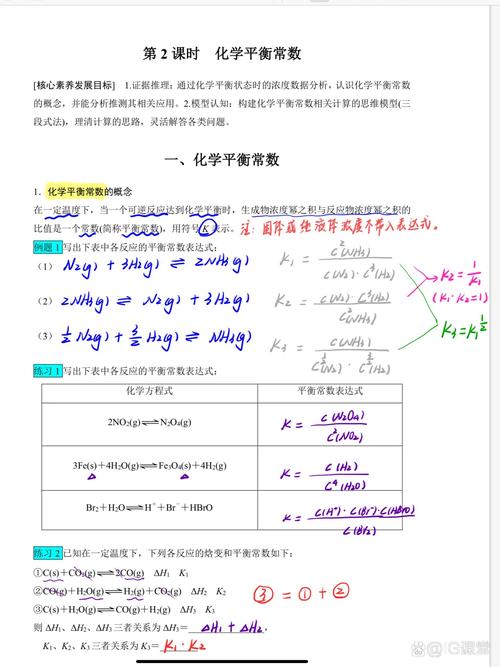 第 2 课时 化学平衡常数
[核心素养发展目标] 1.证据推理：通过化学平衡状态时的浓度数据分析，认识化学平衡常数
的概念，并能分析推测其相关应用。2.模型认知：构建化学平衡常数相关计算的思维模型(三
段式法)，理清计算的思路，灵活解答各类问题。
一、化学平衡常数
1．化学平衡常数的概念
在一定温度下，当一个可逆反应达到化学平衡时，生成物浓度幂之积与反应物浓度幂之积的
比值是一个常数(简称平衡常数)，用符号 K 表示。注：固体或纯液体浓度不带入表达式。
例题 1 写出下表中各反应的平衡常数表达式：
（1） N2(g) + 3H2(g) ⇌ 2NH3(g) K1 = c²(NH3) / c(N2)·c³(H2)
K2 = 1/K1
(K1·K2=1)
（2） 2NH3(g) ⇌ N2(g) + 3H2(g) K2 = c(N2)·c³(H2) / c²(NH3)
K3=K1^1/2
（3） 1/2 N2(g) + 3/2 H2(g) ⇌ NH3(g) K3 = c(NH3) / c^1/2(N2)·c^3/2(H2)
练习 1 写出下表中各反应的平衡常数表达式：
化学方程式 平衡常数表达式
2NO2(g)⇌N2O4(g) K = c(N2O4) / c²(NO2)
3Fe(s)+4H2O(g)⇌Fe3O4(s)+4H2(g) K = c⁴(H2) / c⁴(H2O)
Br2+H2O⇌H⁺+Br⁻+HBrO K = c(H⁺)·c(Br⁻)·c(HBrO) / c(Br2)
练习 2 已知在一定温度下，下列各反应的焓变和平衡常数如下：
①C(s)+CO2(g)⇌2CO(g) ΔH1 K1
②CO(g)+H2O(g)⇌H2(g)+CO2(g) ΔH2 K2 ③ = ① + ②
③C(s)+H2O(g)⇌CO(g)+H2(g) ΔH3 K3
则 ΔH1、ΔH2、ΔH3 三者关系为 ΔH3= ΔH1 + ΔH2，
K1、K2、K3 三者关系为 K3= K1·K2
IG课堂